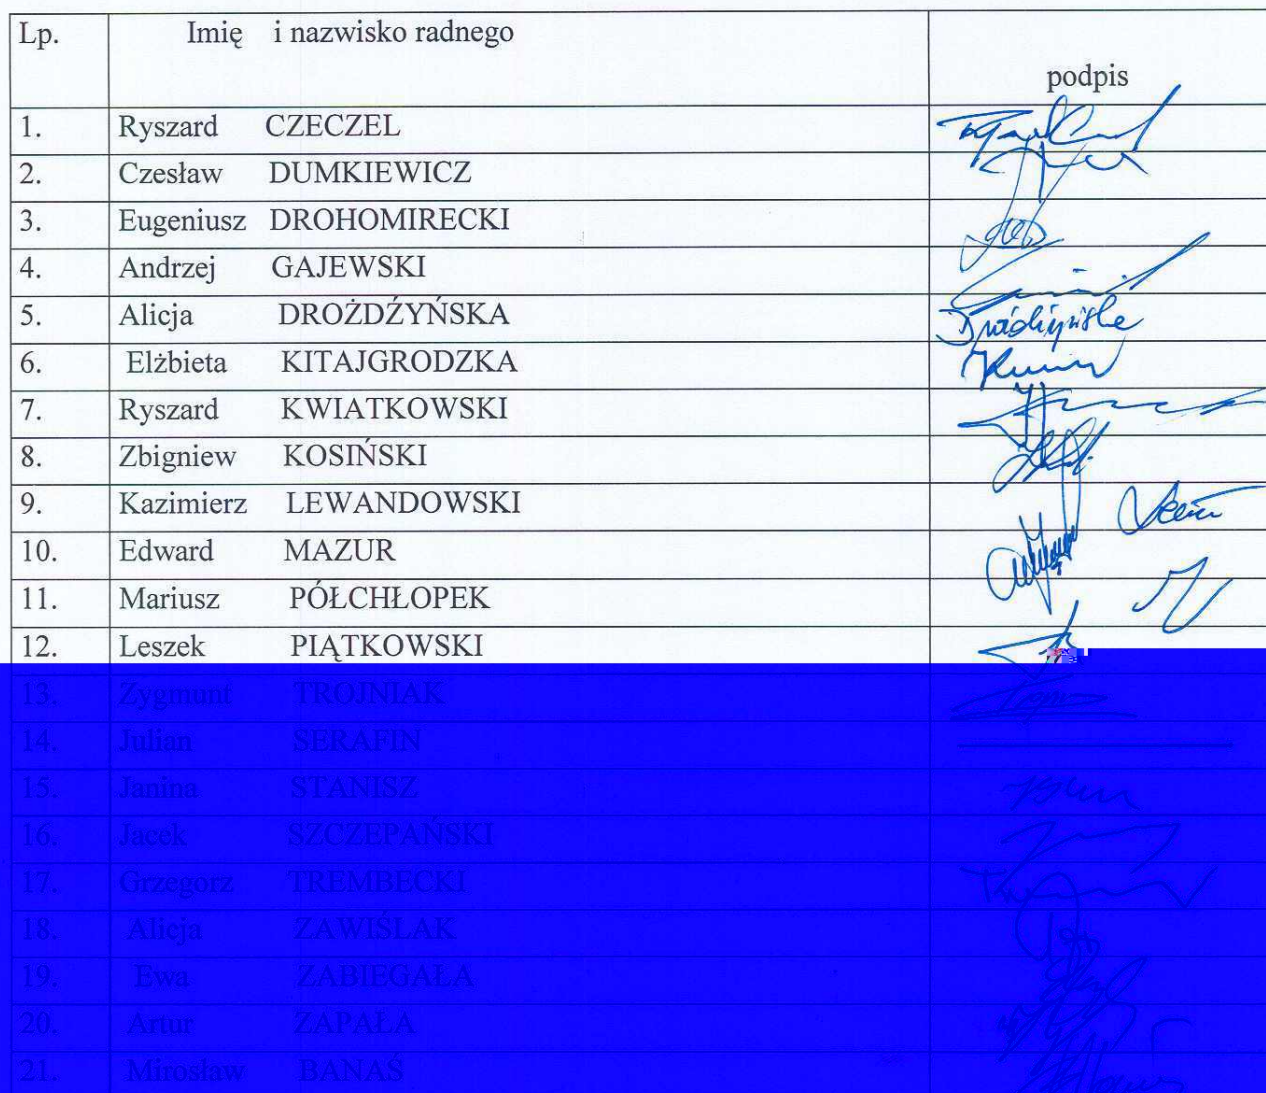 Lp. Imię i nazwisko radnego
podpis
1. Ryszard CZECZEL
2. Czesław DUMKIEWICZ
3. Eugeniusz DROHOMIRECKI
4. Andrzej GAJEWSKI
5. Alicja DROŻDŹYŃSKA
6. Elżbieta KITAJGRODZKA
7. Ryszard KWIATKOWSKI
8. Zbigniew KOSIŃSKI
9. Kazimierz LEWANDOWSKI
10. Edward MAZUR
11. Mariusz PÓŁCHŁOPEK
12. Leszek PIĄTKOWSKI
13. Zygmunt TROJNIAK
14. Julian SERAFIN
15. Janina STANISZ
16. Jacek SZCZEPAŃSKI
17. Grzegorz TREMBECKI
18. Alicja ZAWIŚLAK
19. Ewa ZABIEGAŁA
20. Artur ZAPAŁA
21. Mirosław BANAŚ